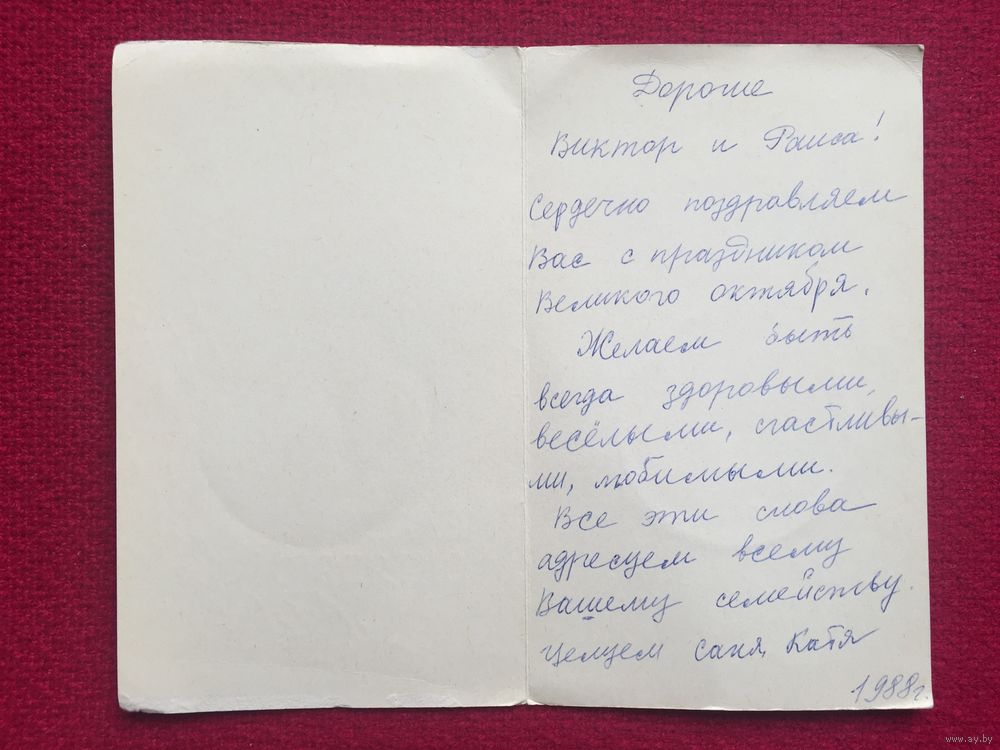 Дорогие
Виктор и Раиса!
Сердечно поздравляем
Вас с праздником
Великого октября.
Желаем быть
всегда здоровыми,
весёлыми, счастливы-
ми, любимыми.
Все эти слова
адресуем всему
Вашему семейству.
Целуем Саня, Катя
1988г.
www.ay.by